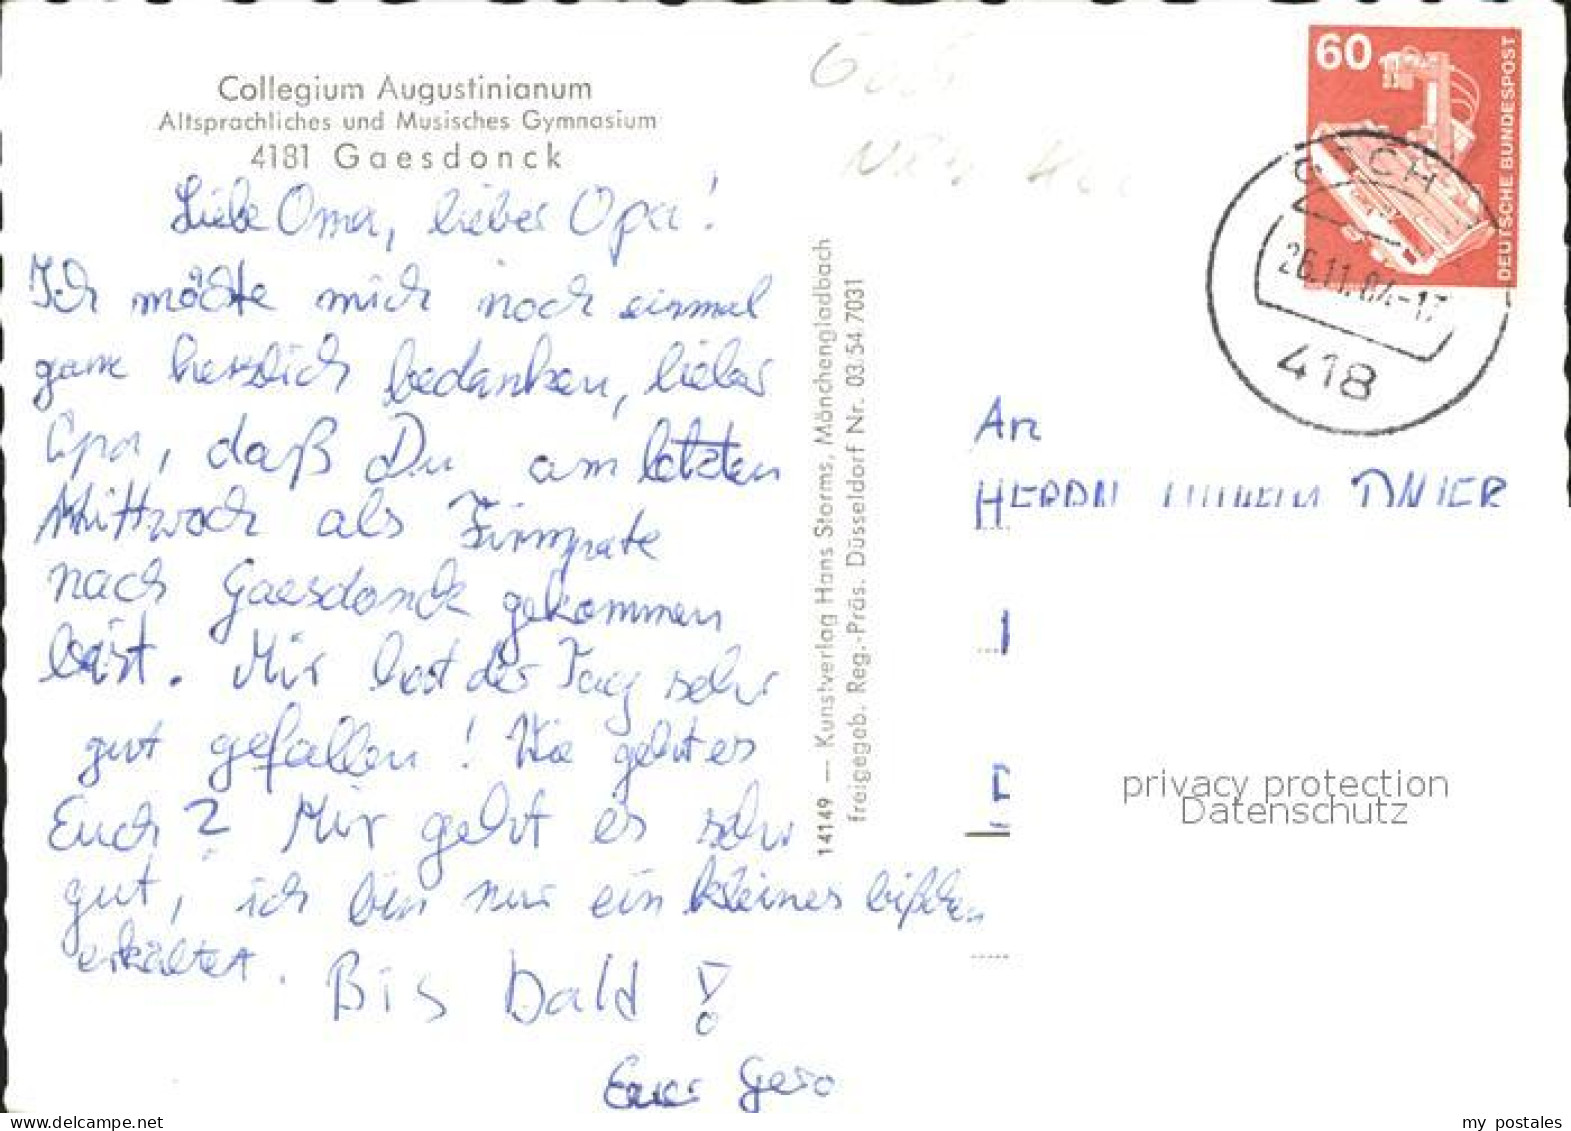 Collegium Augustinianum
Altsprachliches und Musisches Gymnasium
4181 Gaesdonck
Liebe Oma, lieber Opa!
Ich möchte mich noch einmal
ganz herzlich bedanken, lieber
Opa, daß Du am letzten
Mittwoch als Firmpate
nach Gaesdonck gekommen
bist. Mir hat der Tag sehr
gut gefallen! Wie geht es
Euch? Mir geht es sehr
gut, ich bin nur ein kleines bißchen
erkältet. Bis bald!
Euer Gero
14149 — Kunstverlag Hans Storms, Mönchengladbach
freigegeb. Reg.-Präs. Düsseldorf Nr. 03.54.7031
60
DEUTSCHE BUNDESPOST
G CH
26.11.84-17
418
An
HERRN
privacy protection
Datenschutz
my_postales